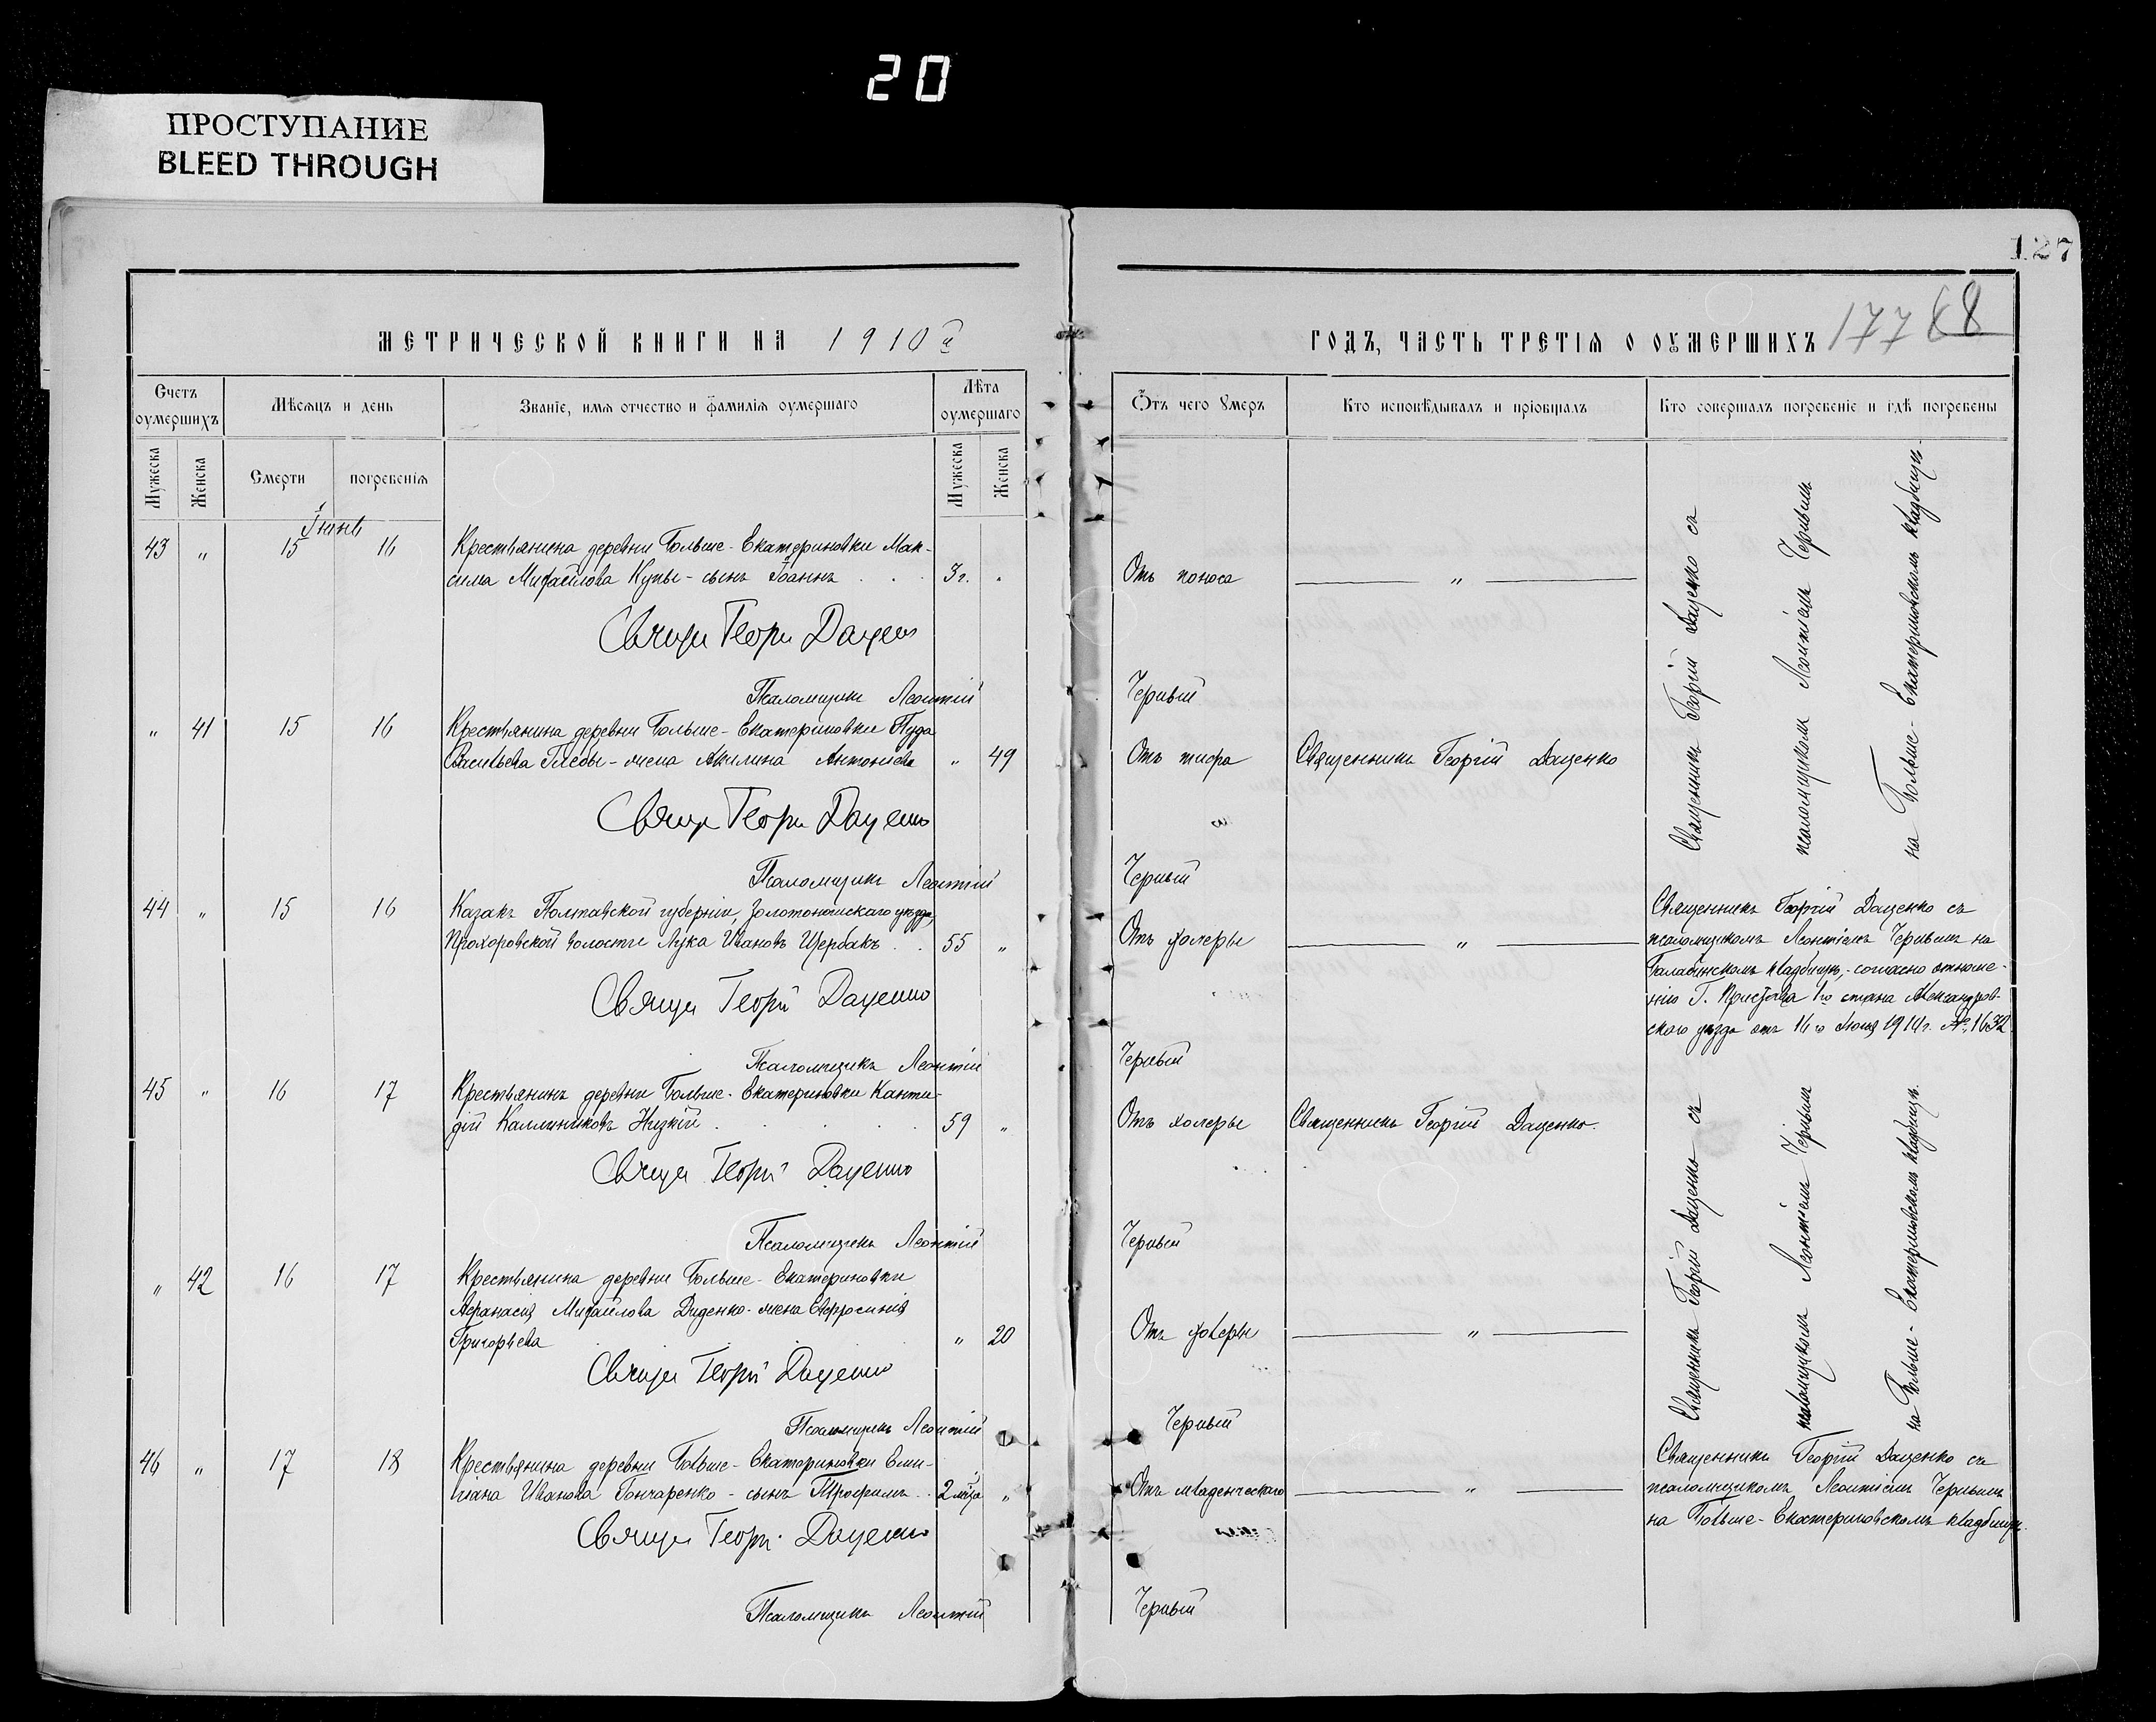 20
ПРОСТУПАНИЕ
BLEED THROUGH
127
МЕТРИЧЕСКОЙ КНИГИ НА 1910й
ГОДЪ, ЧАСТЬ ТРЕТІЯ О ОУМЕРШИХЪ
177 88
Счетъ оумершихъ
Мѣсяцъ и день
Званіе, имя отчество и фамилія оумершаго
Лѣта оумершаго
Отъ чего умеръ
Кто исповѣдывалъ и пріобщалъ
Кто совершалъ погребеніе и гдѣ погребены
Мужеска
Женска
Смерти
погребенія
Мужеска
Женска
Іюнь
43 " 15 16 Крестьянина деревни Больше-Екатериновки Мак-
сима Михайлова Купы - сынъ Іоаннъ 3 г. "
Отъ поноса "
Священникъ Георгій Даценко съ
псаломщикомъ Леонтіемъ Чернымъ
на Больше-Екатериновскомъ кладбищѣ
Свящ Георгі Даценко
Псаломщикъ Леонтій Черный
" 41 15 16 Крестьянина деревни Больше-Екатериновки Пуда
Васильева Глебы - жена Акилина Антоніева " 49
Отъ тифа Священникъ Георгій Даценко
Свящ Георгі Даценко
Псаломщикъ Леонтій Черный
44 " 15 16 Казакъ Полтавской губерніи, Золотоношскаго уѣзда,
Прохоровской волости Лука Ивановъ Щербакъ 55 "
Отъ холеры "
Священникъ Георгій Даценко съ
псаломщикомъ Леонтіемъ Чернымъ на
Балабинскомъ кладбищѣ, - согласно отноше-
нію Г. Пристава 1го стана Александров-
ского уѣзда отъ 16го Іюня 1910 г. № 1632
Свящ Георгій Даценко
Псаломщикъ Леонтій Черный
45 " 16 17 Крестьянинъ деревни Больше-Екатериновки Канти-
дій Каллиниковъ Низкій 59 "
Отъ холеры Священникъ Георгій Даценко.
Священникъ Георгій Даценко съ
псаломщикомъ Леонтіемъ Чернымъ
на Больше-Екатериновскомъ кладбищѣ.
Свящ Георгій Даценко
Псаломщикъ Леонтій Черный
" 42 16 17 Крестьянина деревни Больше-Екатериновки
Афанасія Михайлова Диденко - жена Евфросинія
Григорьева " 20
Отъ холеры "
Свящ Георгій Даценко
Псаломщикъ Леонтій Черный
46 " 17 18 Крестьянина деревни Больше-Екатериновки Еми-
ліана Иванова Гончаренко - сынъ Трофимъ 2 мѣсяца "
Отъ младенческаго "
Священникъ Георгій Даценко съ
псаломщикомъ Леонтіемъ Чернымъ
на Больше-Екатериновскомъ кладбищѣ.
Свящ Георгі Даценко
Псаломщикъ Леонтій Черный